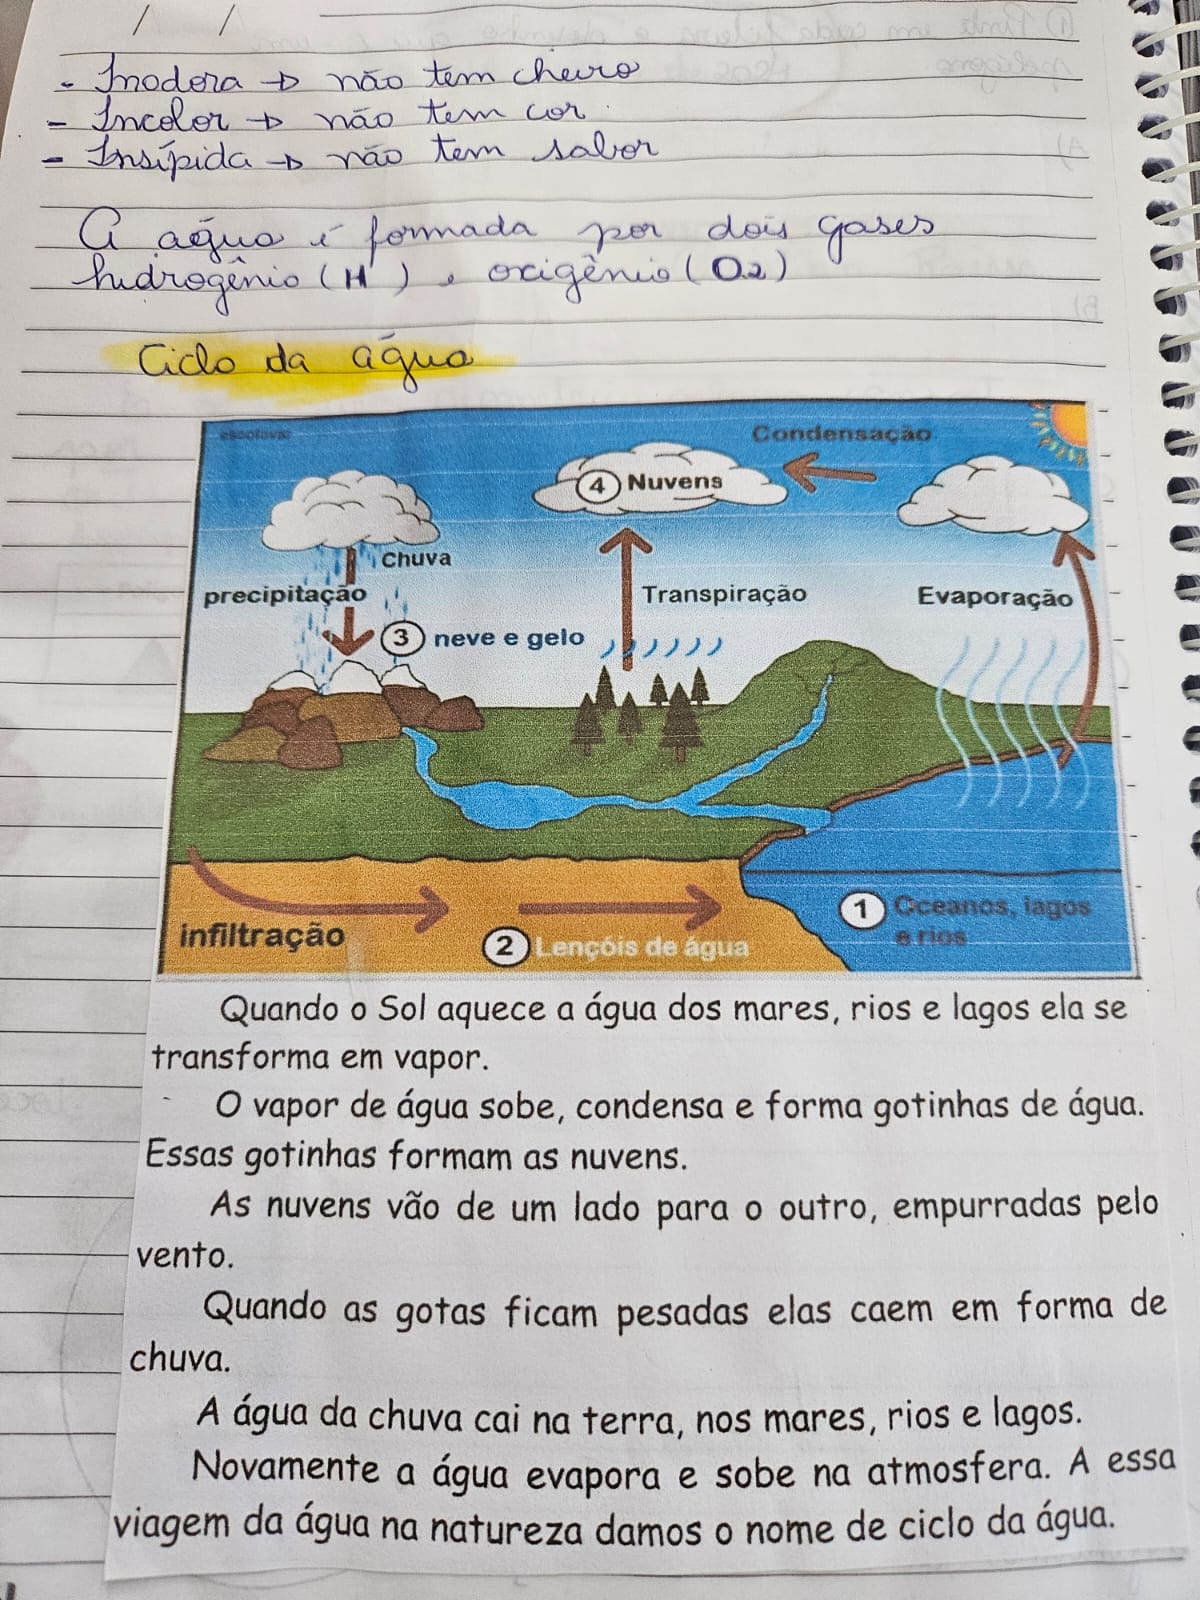 / /
- Inodora → não tem cheiro
- Incolor → não tem cor
- Insípida → não tem sabor
A água é formada por dois gases
hidrogênio (H ) e oxigênio (O2)
Ciclo da água
Condensação
4 Nuvens
Chuva
precipitação
Transpiração
Evaporação
3 neve e gelo
infiltração
2 Lençóis de água
1 Oceanos, lagos
e rios
Quando o Sol aquece a água dos mares, rios e lagos ela se
transforma em vapor.
O vapor de água sobe, condensa e forma gotinhas de água.
Essas gotinhas formam as nuvens.
As nuvens vão de um lado para o outro, empurradas pelo
vento.
Quando as gotas ficam pesadas elas caem em forma de
chuva.
A água da chuva cai na terra, nos mares, rios e lagos.
Novamente a água evapora e sobe na atmosfera. A essa
viagem da água na natureza damos o nome de ciclo da água.